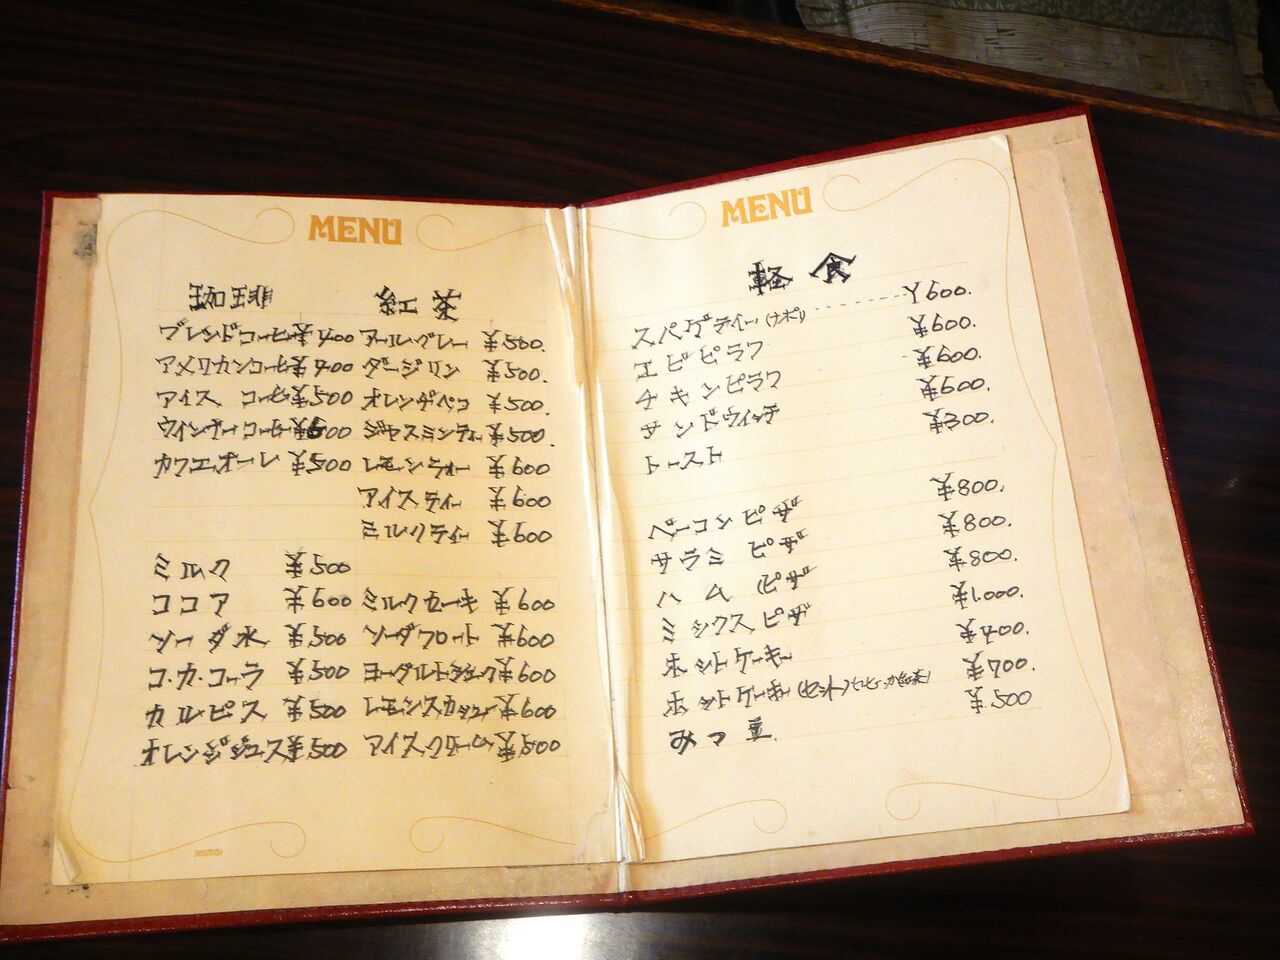 MENU
珈琲 紅茶
ブレンドコーヒー ¥400 アールグレー ¥500.
アメリカンコーヒー ¥400 ダージリン ¥500.
アイス コーヒー ¥500 オレンヂペコ ¥500.
ウインナーコーヒー ¥600 ジャスミンティー ¥500.
カフェオーレ ¥500 レモンティー ¥600
アイスティー ¥600
ミルクティー ¥600
ミルク ¥500
ココア ¥600 ミルクセーキ ¥600
ソーダ水 ¥500 ソーダフロート ¥600
コ・カ・コーラ ¥500 ヨーグルトドリンク ¥600
カルピス ¥500 レモンスカッシュ ¥600
オレンジジュース ¥500 アイスクリーム ¥500
MENU
軽食
スパゲティー(ナポリ) ¥600.
エビピラフ ¥600.
チキンピラフ ¥600.
サンドウィッチ ¥600.
トースト ¥300.
ベーコンピザ ¥800.
サラミ ピザ ¥800.
ハム ピザ ¥800.
ミックスピザ ¥1.000.
ホットケーキ
ホットケーキ(セット) ¥700.
みつ豆. ¥500